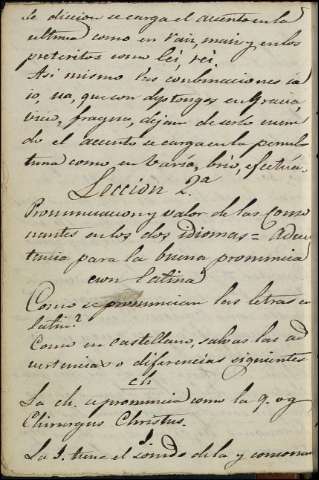 de diccion se carga el acento en la
ultima como en raiz, maiz y en los
preteritos como leí, reí.
Asi mismo las conbinaciones ia
io, ua, que son dyptongos en Gracia
vicio, fraguas, dejan de serlo cuan
do el acento se carga en la penul
tima como en varía, brio, efectúa.
Leccion 2.ª
Pronunciacion y valor de las conso
nantes en los dos idiomas = Adver
tencia para la buena pronuncia
cion latina
Como se pronuncian las letras en
latin?
Como en castellano, salvas las ad
vertencias o diferencias siguientes
ch
La ch. se pronuncia como la q. o g
Chirurgus Christus.
J.
La J. tiene el sonido de la y consonan